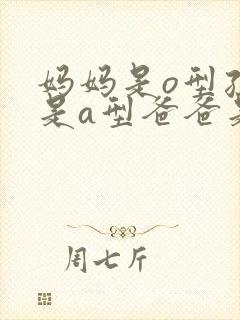 妈妈是o型
是a型爸爸
周七斤